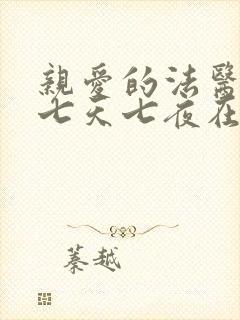 親愛的法醫
七天七夜在
蓁越